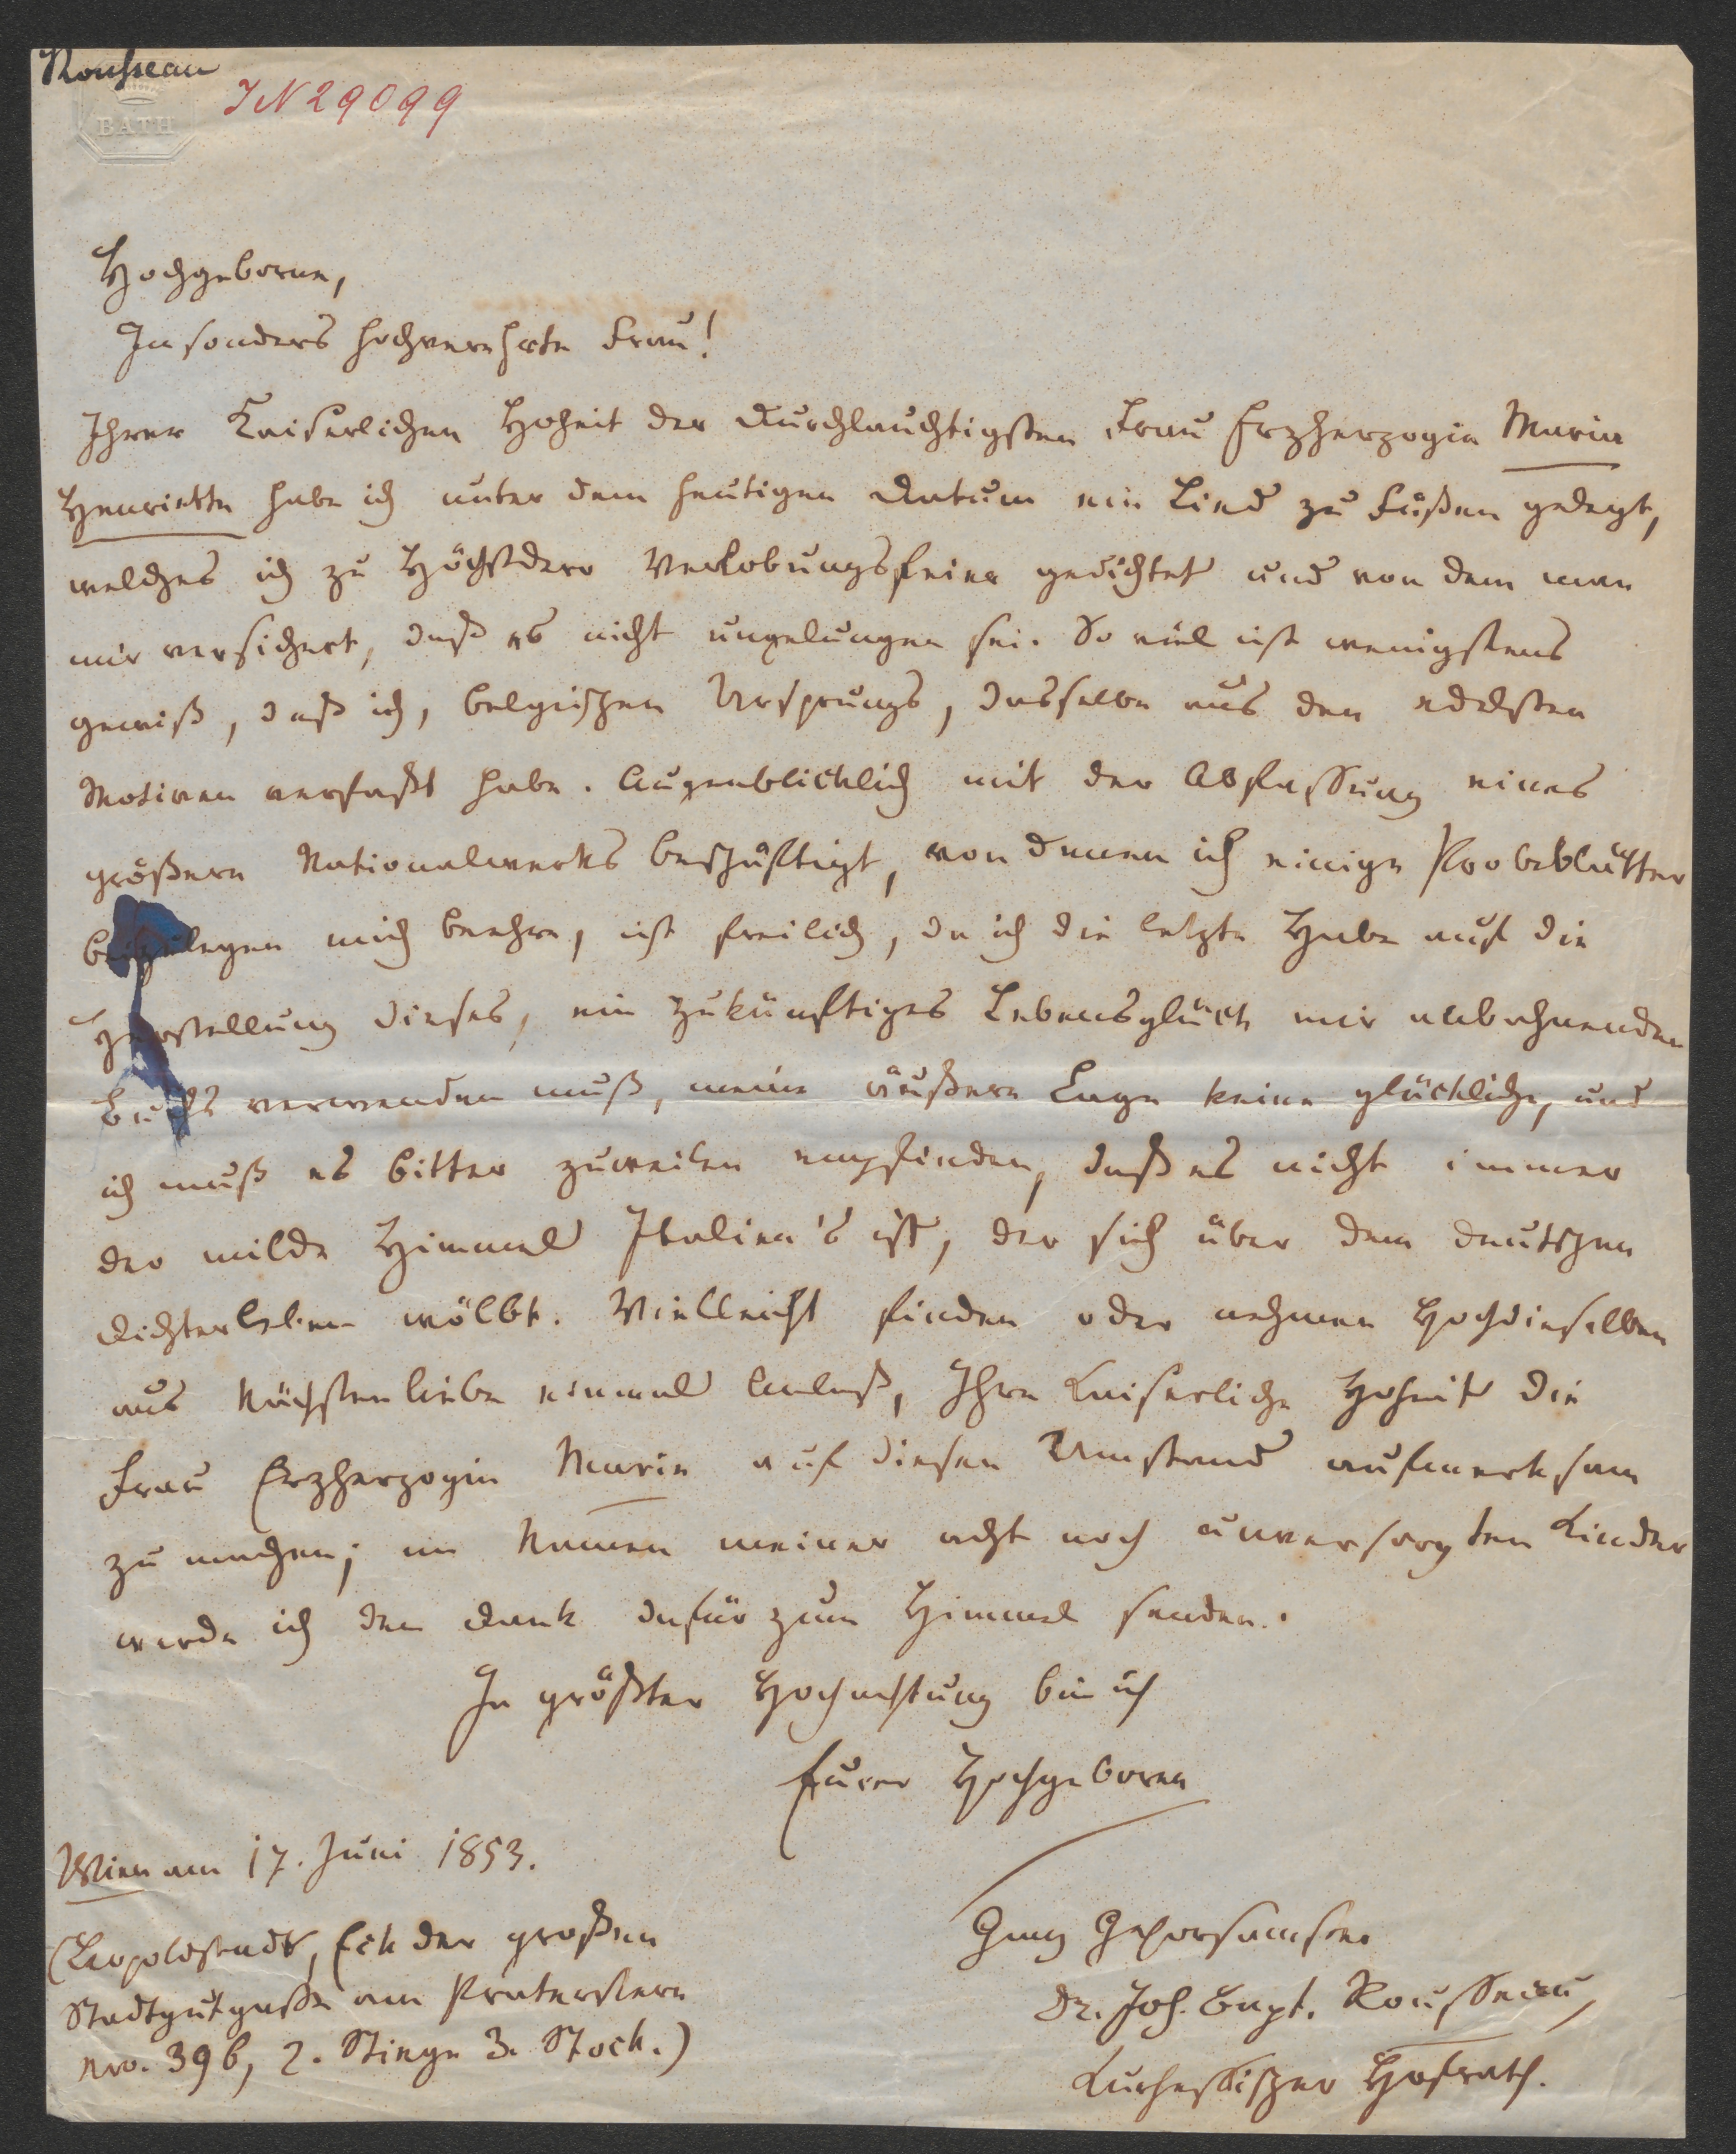 Rousseau
IN 29099
BATH
Hochgeborne,
Insonders hochverehrte Frau!
Ihrer Kaiserlichen Hoheit der durchlauchtigsten Frau Erzherzogin Maria
Henriette habe ich unter dem heutigen Datum ein Lied zu Füßen gelegt,
welches ich zu Höchstdero Verlobungsfeier gedichtet und von dem man
mir versichert, daß es nicht ungelungen sei. So viel ist wenigstens
gewiß, daß ich, belgischen Ursprungs, dasselbe aus den edelsten
Motiven verfaßt habe. Augenblicklich mit der Abfassung eines
größern Nationalwerks beschäftigt, von denen ich einige Probeblätter
beizulegen mich beehre, ist freilich, da ich die letzte Habe auf die
Herstellung dieses, ein zukünftiges Lebensglück mir anbahnenden
Buchs verwenden muß, meine äußere Lage keine glückliche, und
ich muß es bitter zuweilen empfinden, daß es nicht immer
der milde Himmel Italien's ist, der sich über dem deutschen
Dichterleben wölbt. Vielleicht finden oder nehmen Hochdieselben
aus Nächstenliebe einmal Anlaß, Ihre Kaiserliche Hoheit die
Frau Erzherzogin Marie auf diesen Umstand aufmerksam
zu machen; im Namen meiner acht noch unversorgten Kinder
werde ich den Dank dafür zum Himmel senden.
In größter Hochachtung bin ich
Eurer Hochgeboren
Wien am 17. Juni 1853.
(Leopoldstadt, Eck der großen
Stadtgutgasse am Praterstern
Nro. 396, 2. Stiege 3. Stock.)
Ganz Gehorsamster
Dr. Joh. Bapt. Rousseau,
Kurhessischer Hofrath.